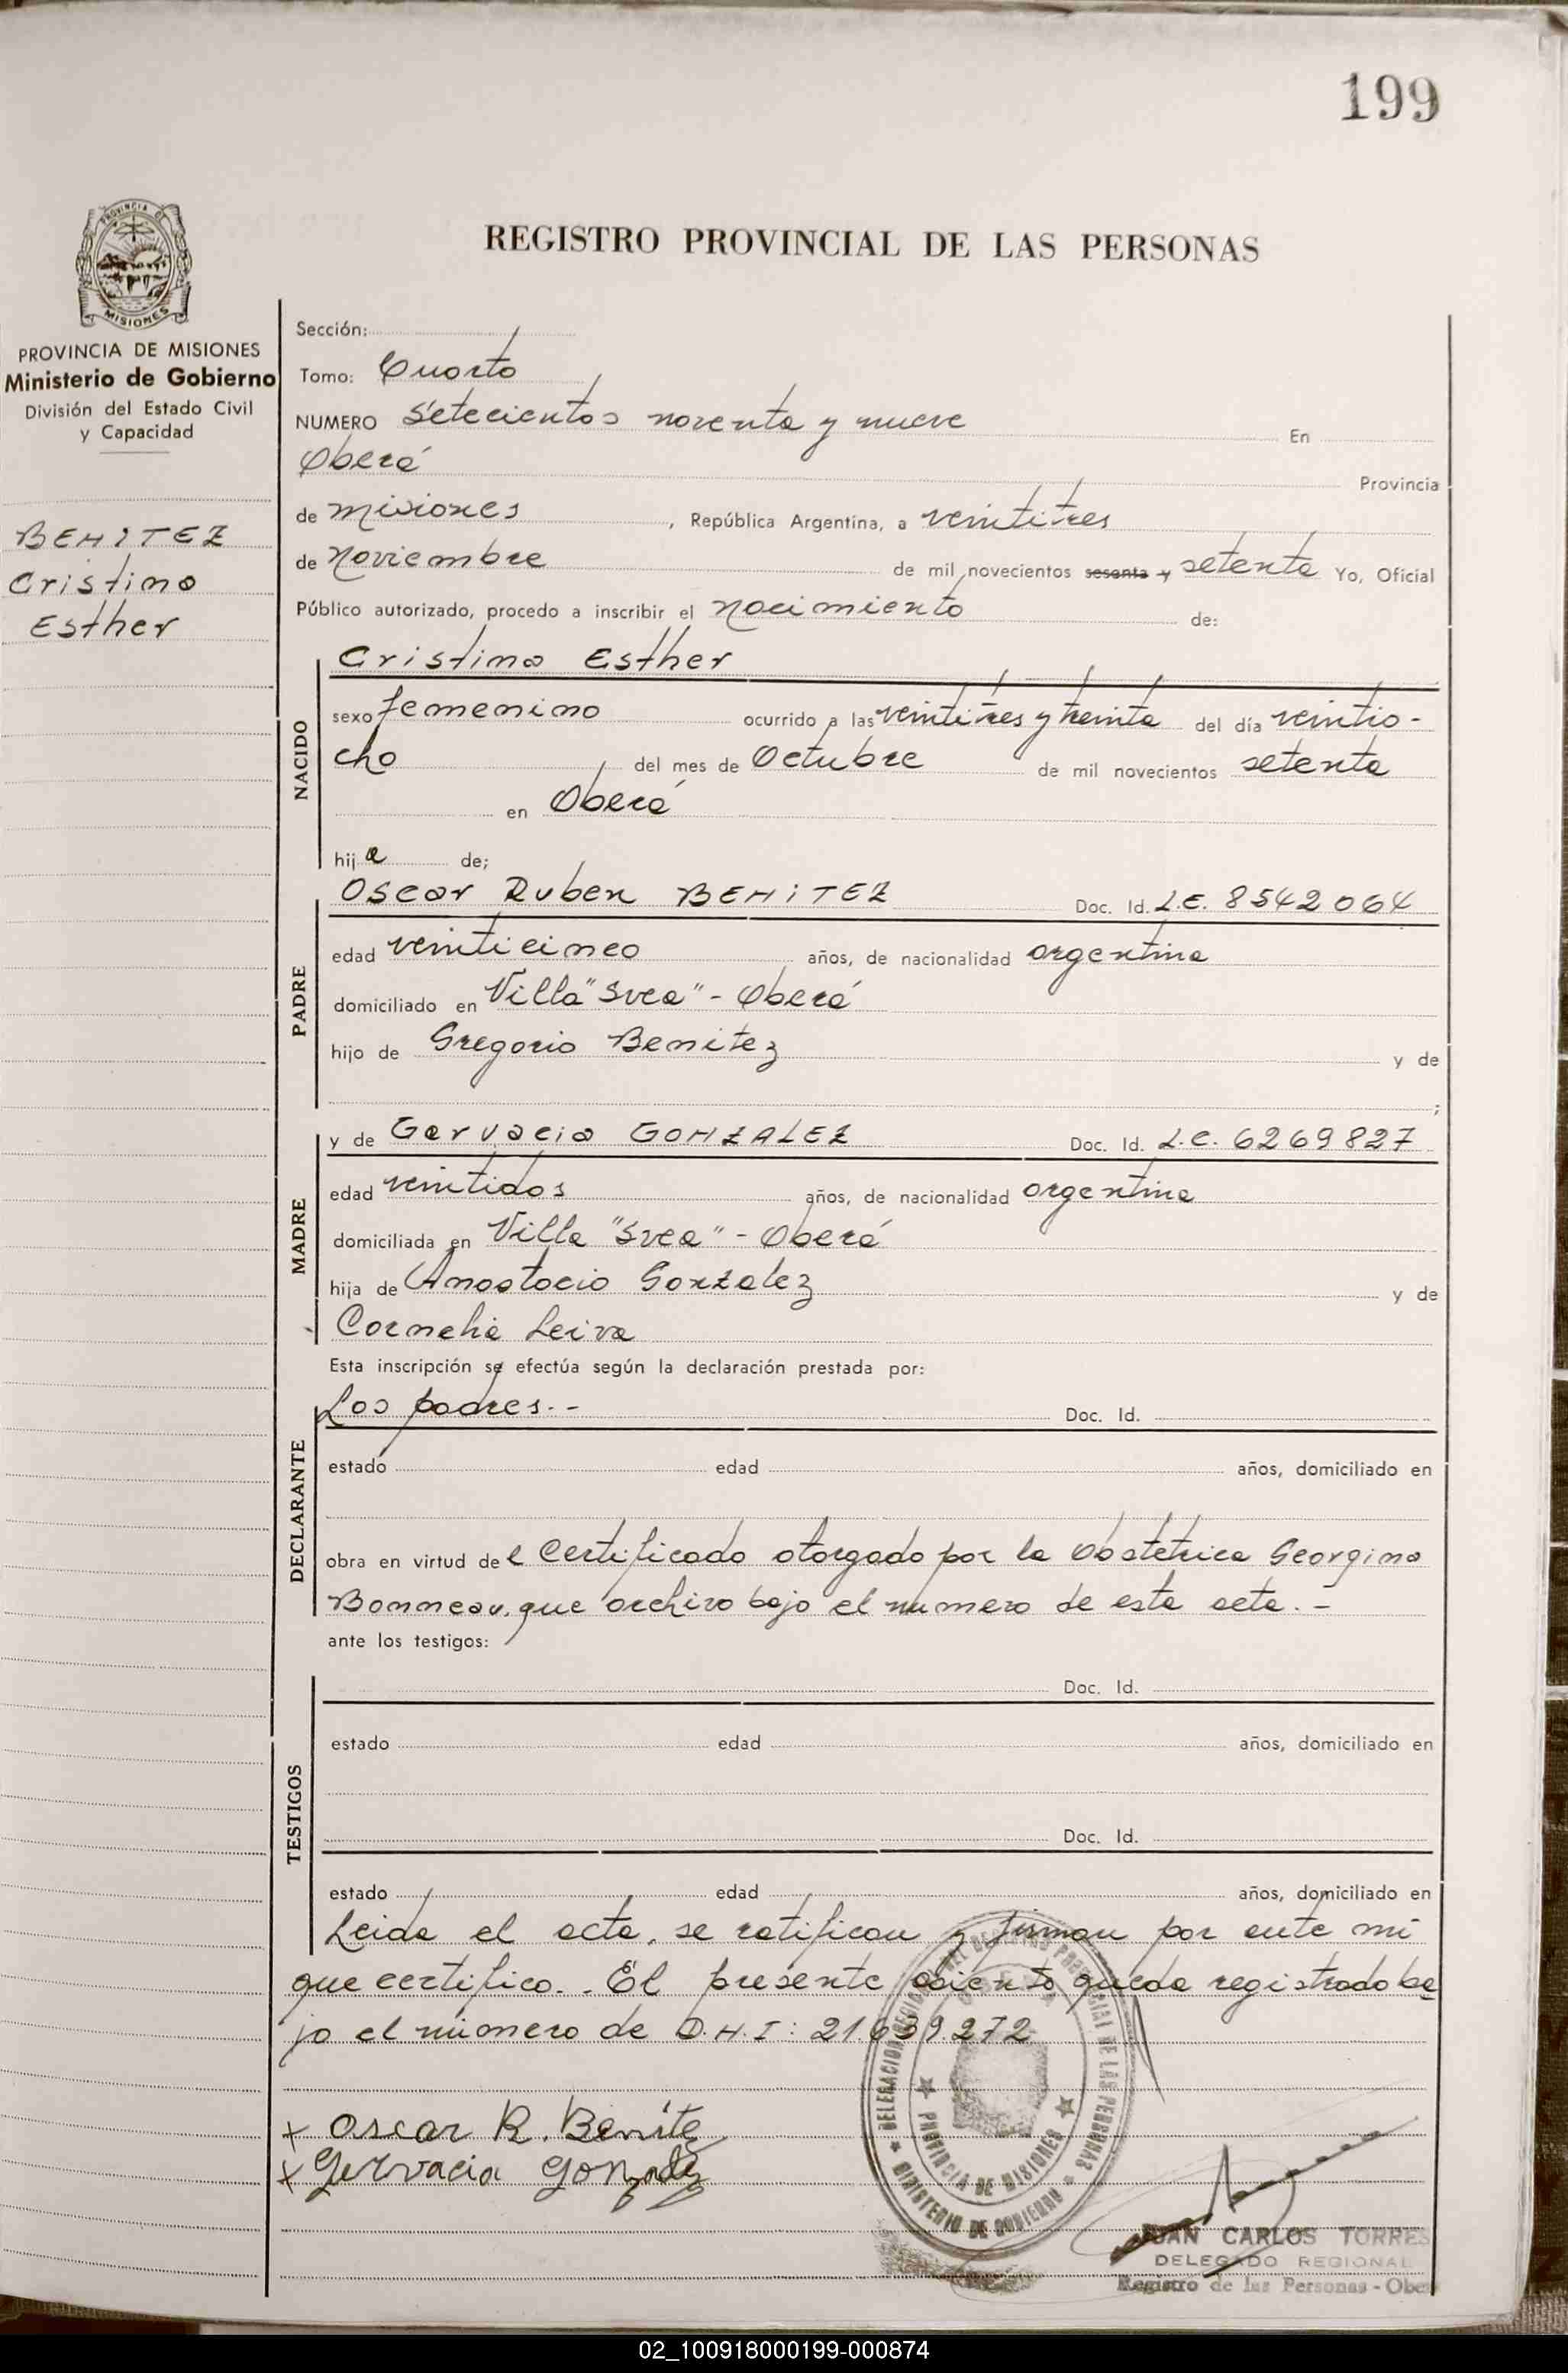 199
PROVINCIA DE
MISIONES
REGISTRO PROVINCIAL DE LAS PERSONAS
PROVINCIA DE MISIONES
Ministerio de Gobierno
División del Estado Civil
y Capacidad
BENITEZ
Cristina
Esther
Sección:
Tomo: Cuarto
NUMERO Setecientos noventa y nueve En
Oberá Provincia
de Misiones , República Argentina, a veintitres
de Noviembre de mil novecientos sesenta y setenta Yo, Oficial
Público autorizado, procedo a inscribir el nacimiento de:
NACIDO
Cristina Esther
sexo femenino ocurrido a las veintitres y treinta del día veintio-
cho del mes de Octubre de mil novecientos setenta
en Oberá
hija de;
PADRE
Oscar Ruben BENITEZ Doc. Id. L.E. 8542064
edad veinticinco años, de nacionalidad argentina
domiciliado en Villa "Svea" - Oberá
hijo de Gregorio Benitez y de
;
MADRE
y de Gervacia GONZALEZ Doc. Id. L.C. 6269827
edad veintidos años, de nacionalidad argentina
domiciliada en Villa "Svea" - Oberá
hija de Anastacio Gonzalez y de
Cornelia Leiva
Esta inscripción se efectúa según la declaración prestada por:
DECLARANTE
Los padres.- Doc. Id.
estado edad años, domiciliado en
obra en virtud del Certificado otorgado por la Obstetrica Georgina
Bonneau, que archivo bajo el numero de esta acta.-
ante los testigos:
TESTIGOS
Doc. Id.
estado edad años, domiciliado en
Doc. Id.
estado edad años, domiciliado en
Leida el acta, se ratifican y firman por ante mi
que certifico.. El presente asiento queda registrado ba
jo el número de D.N.I: 21.639272
x Oscar R. Benitez
x Gervacia Gonzalez
PROVINCIA DE MISIONES
MINISTERIO DE GOBIERNO
JUAN CARLOS TORRES
DELEGADO REGIONAL
Registro de las Personas - Obe
02_100918000199-000874